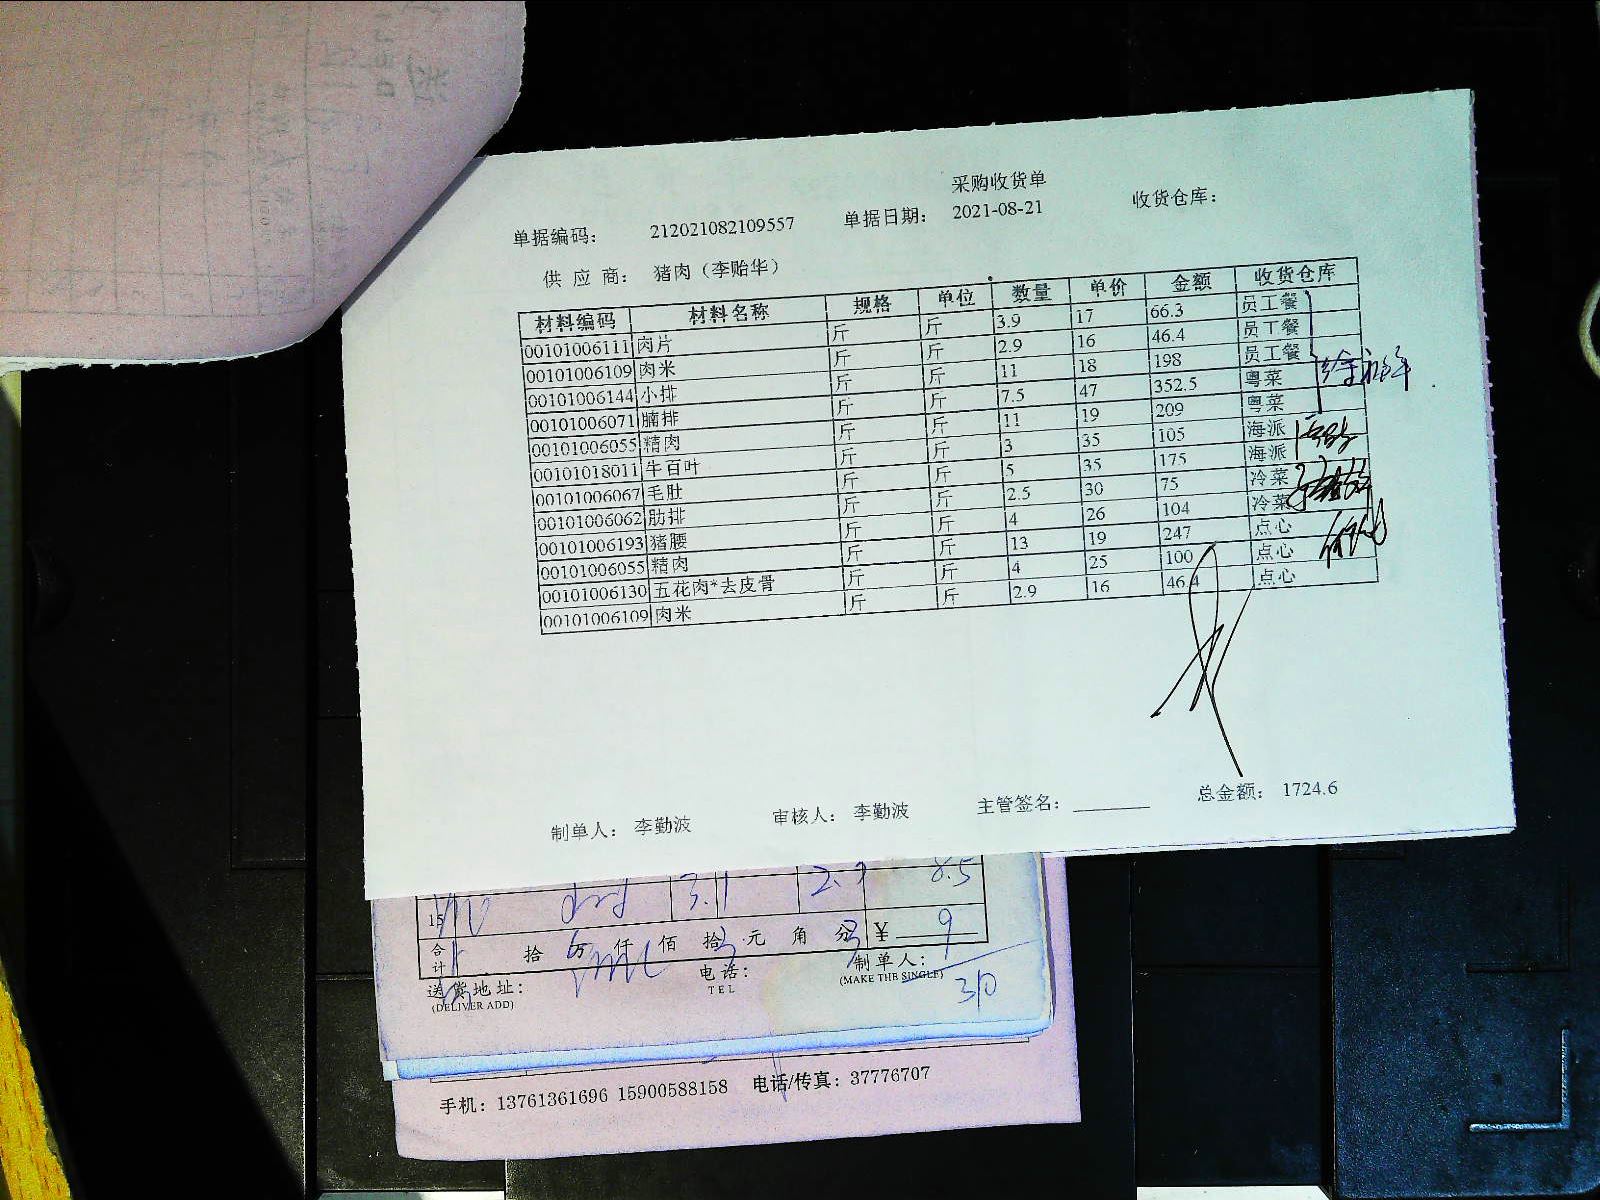 采购收货单
单据编码： 212021082109557 单据日期： 2021-08-21 收货仓库：
供 应 商： 猪肉（李贻华）
材料编码 材料名称 规格 单位 数量 单价 金额 收货仓库
00101006111 肉片 斤 斤 3.9 17 66.3 员工餐
00101006109 肉米 斤 斤 2.9 16 46.4 员工餐
00101006144 小排 斤 斤 11 18 198 员工餐
00101006071 腩排 斤 斤 7.5 47 352.5 粤菜
00101006055 精肉 斤 斤 11 19 209 粤菜
00101018011 牛百叶 斤 斤 3 35 105 海派
00101006067 毛肚 斤 斤 5 35 175 海派
00101006062 肋排 斤 斤 2.5 30 75 冷菜
00101006193 猪腰 斤 斤 4 26 104 冷菜
00101006055 精肉 斤 斤 13 19 247 点心
00101006130 五花肉*去皮骨 斤 斤 4 25 100 点心
00101006109 肉米 斤 斤 2.9 16 46.4 点心
制单人： 李勤波 审核人： 李勤波 主管签名： 总金额： 1724.6
8.5
15
合计 拾 万 仟 佰 拾 元 角 分 ¥ 9
送货地址： 电话： 制单人：
(DELIVER ADD) TEL (MAKE THE SINGLE)
30
手机：13761361696 15900588158 电话/传真：37776707